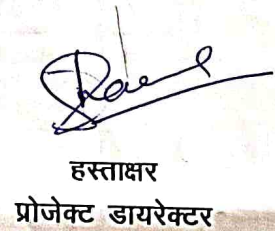 हस्ताक्षर
प्रोजेक्ट डायरेक्टर